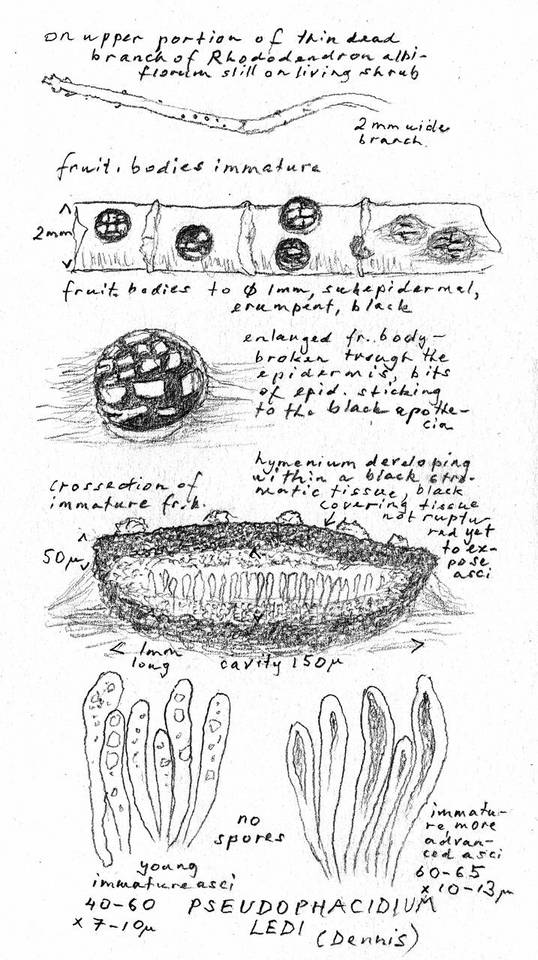 on upper portion of thin dead
branch of Rhododendron albi-
florum still on living shrub
2mm wide
branch
fruit. bodies immature
2mm
fruit. bodies to Ø 1mm, subepidermal,
erumpent, black
enlarged fr. body-
broken trough the
epidermis, bits
of epid. sticking
to the black apothe-
cia
crossection of
immature fr. b.
hymenium developing
within a black stro-
matic tissue, black
covering tissue
not ruptu-
red yet
to ex-
pose
asci
50µ
1mm
long
cavity 150µ
no
spores
young
immature asci
40-60
x 7-10µ
immatu-
re, more
advan-
ced asci
60-65
x 10-13µ
PSEUDOPHACIDIUM
LEDI
(Dennis)